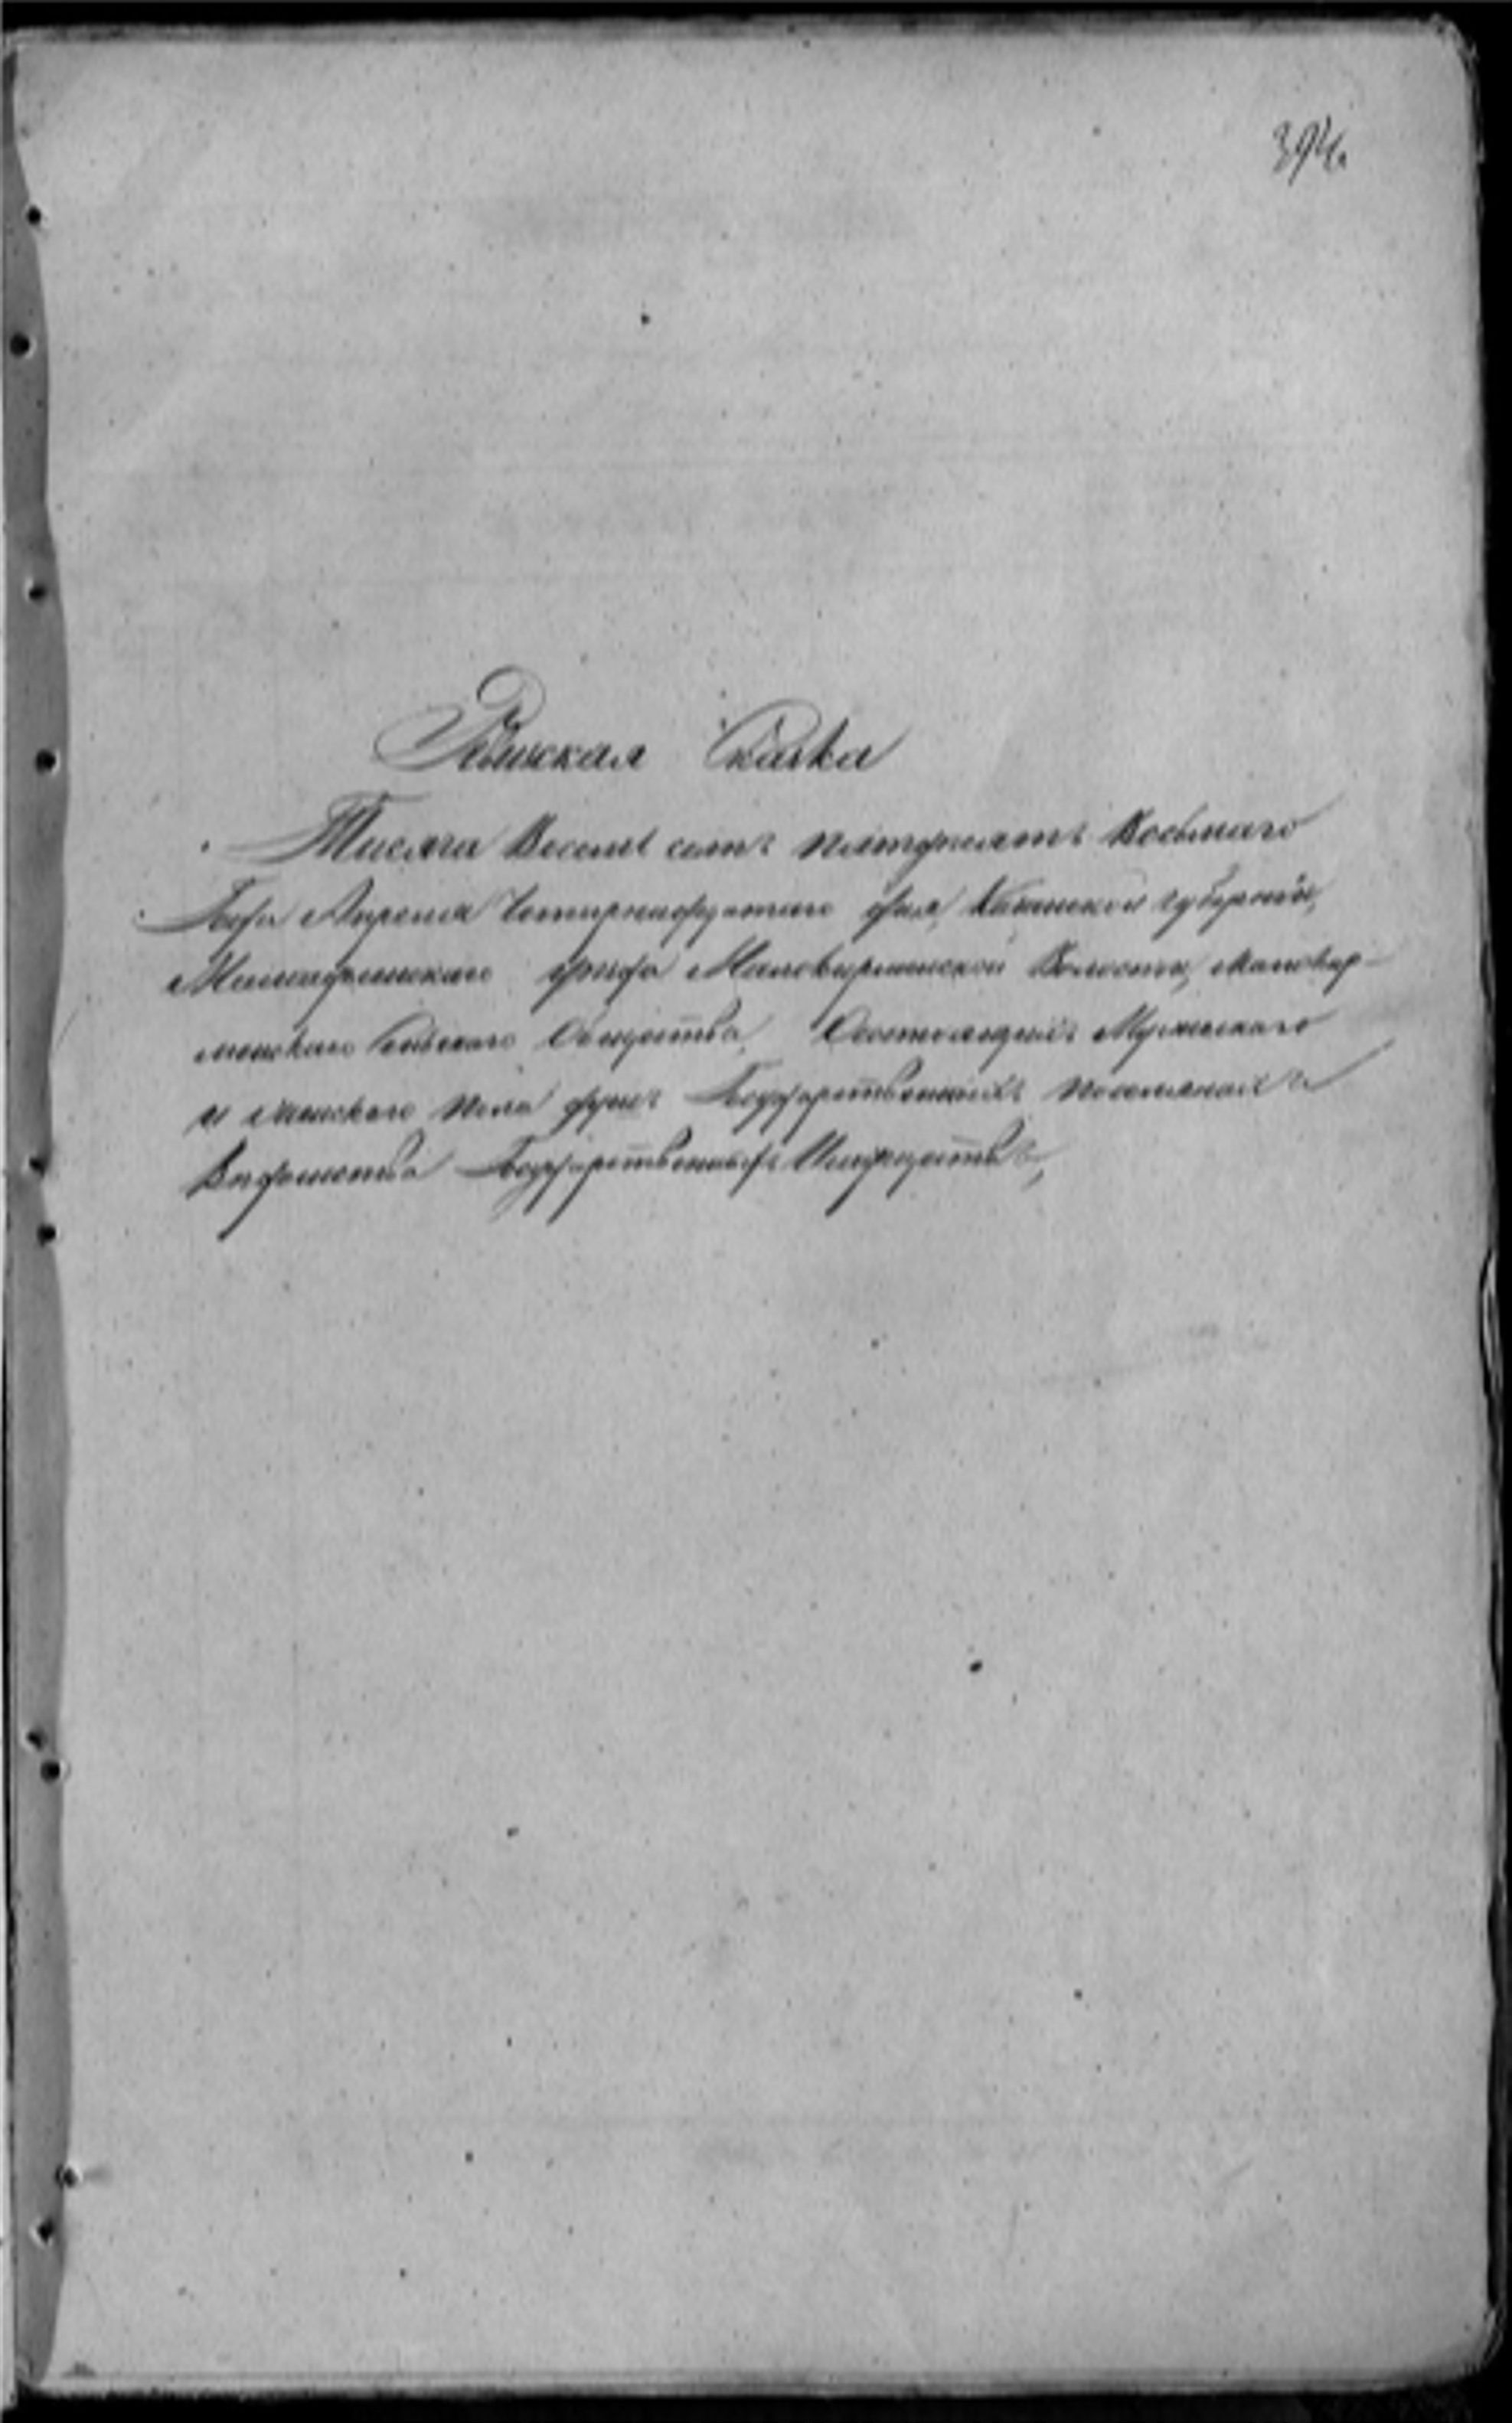 394.
Ревизская Сказка
Тысяча Восемь сотъ пятьдесятъ Восьмаго
Года Апреля Четырнадцатаго дня, Казанской губерніи,
Мамадышскаго уезда Мало
Сельскаго Общества, Состоящихъ Мужескаго
и женскаго пола душъ Государственныхъ поселянахъ
Ведомства Государственныхъ Имуществъ,